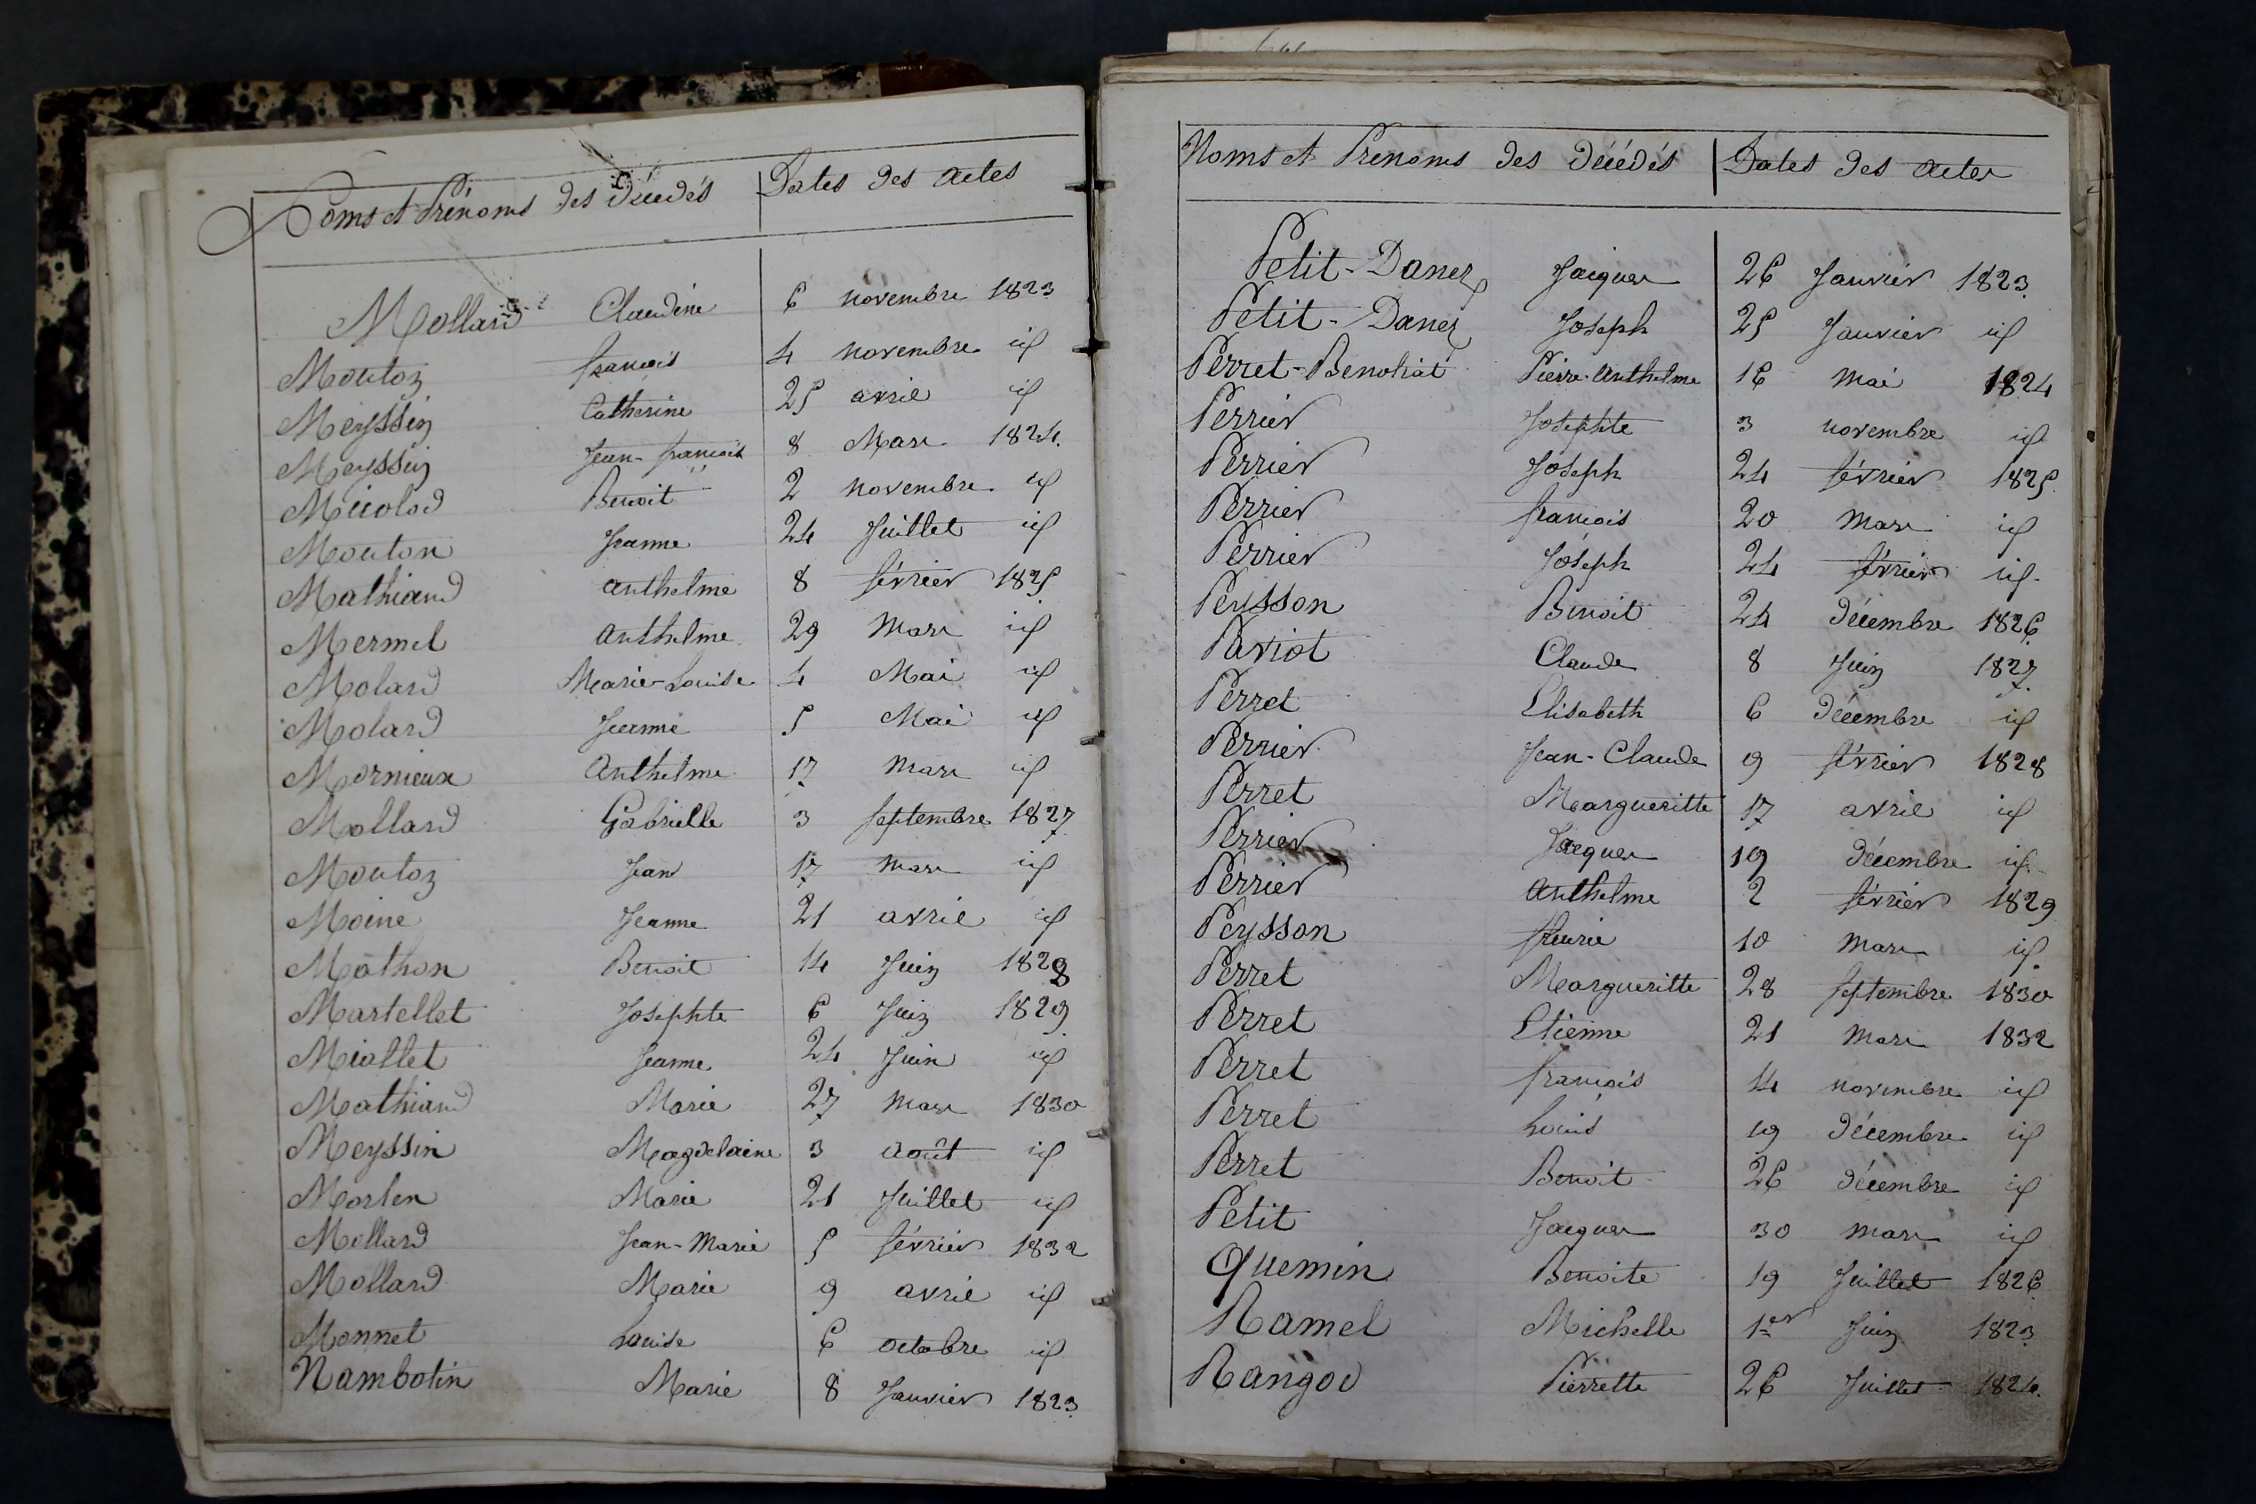 Noms et Prénoms des Décédés Dates des Actes
Mollard Claudine 6 novembre 1823
Moutoz françois 4 novembre id
Meyssin Catherine 25 avril id
Meyssin Jean-françois 8 Mars 1824
Micolod Benoit 2 novembre id
Mouton Jeanne 24 Juillet id
Mathiand Anthelme 8 février 1825
Mermet Anthelme 29 Mars id
Molard Marie-Louise 4 Mai id
Molard Jeanne 5 Mai id
Mornieux Anthelme 17 Mars id
Mollard Gabrielle 3 septembre 1827
Moutoz Jean 17 mars id
Moine Jeanne 21 avril id
Mathon Benoit 14 Juin 1828
Martellet Josephte 6 Juin 1829
Miollet Jeanne 24 Juin id
Mathiand Marie 27 Mars 1830
Meyssin Magdelaine 3 Août id
Morlen Marie 21 Juillet id
Mollard Jean-Marie 5 février 1832
Mollard Marie 9 avril id
Monnet Louise 6 octobre id
Nambotin Marie 8 Janvier 1823
Noms et Prenoms des Décédés Dates des Actes
Petit-Danez Jacques 26 Janvier 1823
Petit-Danez Joseph 25 Janvier id
Perret-Benoliat Pierre-Anthelme 16 Mai 1824
Perrier Josephte 3 novembre id
Perrier Joseph 24 février 1825
Perrier françois 20 Mars id
Perrier Joseph 24 février id
Peysson Benoit 24 Décembre 1826
Paviot Claude 8 Juin 1827
Perret Elisabeth 6 Décembre id
Perrier Jean-Claude 9 février 1828
Perret Margueritte 17 avril id
Perrier Jacques 19 Décembre id
Perrier Anthelme 2 février 1829
Peysson fleurie 10 Mars id
Perret Margueritte 28 septembre 1830
Perret Etienne 21 Mars 1832
Perret françois 14 novembre id
Perret Louis 19 Décembre id
Perret Benoit 26 Décembre id
Petit Jacques 30 Mars id
Quemin Benoite 19 Juillet 1826
Ramel Michelle 1er Juin 1823
Rangod Pierrette 26 Juillet 1824